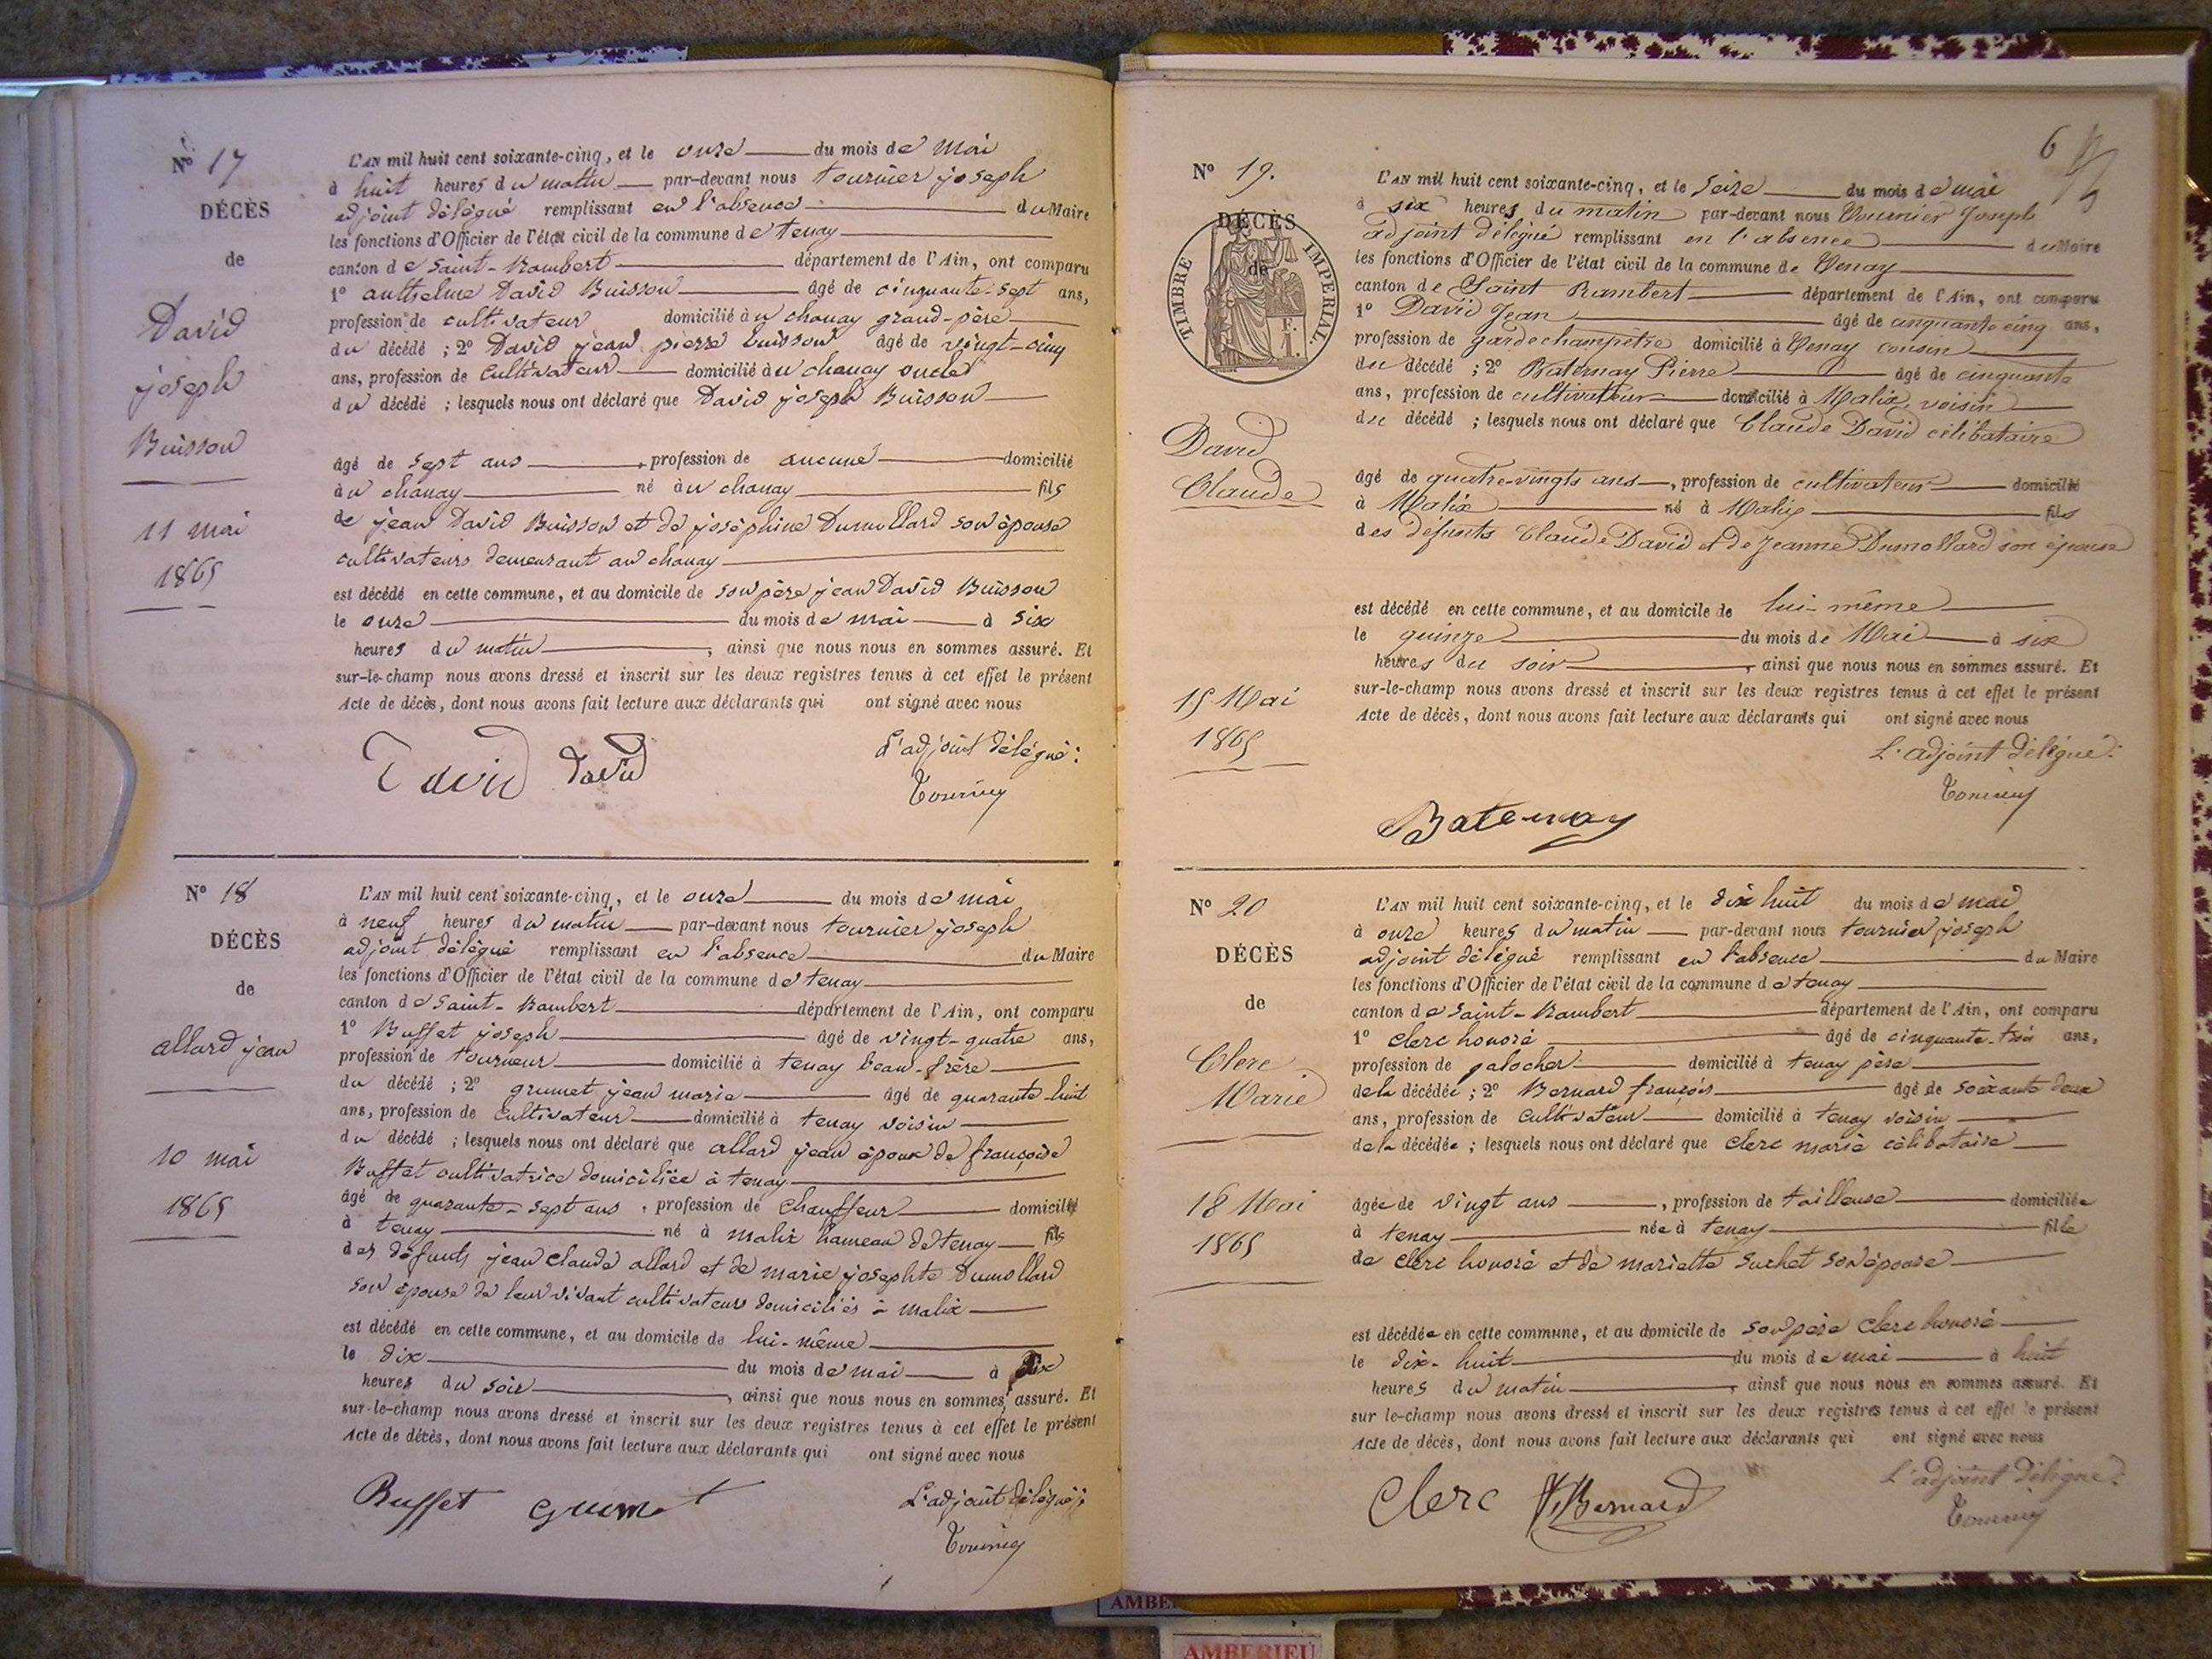 Nº 17
DÉCÈS
de
David
joseph
Buisson
11 mai
1865
L'AN mil huit cent soixante-cinq, et le onze du mois de mai
à huit heures du matin par-devant nous tournier joseph
adjoint délégué remplissant en l'absence du Maire
les fonctions d'Officier de l'état civil de la commune de tenay
canton de Saint-Rambert département de l'Ain, ont comparu
1º anthelme David Buisson âgé de cinquante-sept ans,
profession de cultivateur domicilié au chanay grand-père
du décédé ; 2º David jean pierre buisson âgé de vingt-cinq
ans, profession de cultivateur domicilié au chanay oncle
du décédé ; lesquels nous ont déclaré que David joseph Buisson
âgé de sept ans, profession de aucune domicilié
au chanay né au chanay fils
de jean David Buisson et de joséphine Dumollard son épouse
cultivateurs demeurant au chanay
est décédé en cette commune, et au domicile de son père jean David Buisson
le onze du mois de mai à six
heures du matin, ainsi que nous nous en sommes assuré. Et
sur-le-champ nous avons dressé et inscrit sur les deux registres tenus à cet effet le présent
Acte de décès, dont nous avons fait lecture aux déclarants qui ont signé avec nous
L'adjoint délégué:
David David
Tournier
Nº 18
DÉCÈS
de
allard jean
10 mai
1865
L'AN mil huit cent soixante-cinq, et le onze du mois de mai
à neuf heures du matin par-devant nous tournier joseph
adjoint délégué remplissant en l'absence du Maire
les fonctions d'Officier de l'état civil de la commune de tenay
canton de Saint-Rambert département de l'Ain, ont comparu
1º Buffet joseph âgé de vingt-quatre ans,
profession de tourneur domicilié à tenay beau-frère
du décédé ; 2º grumet jean marie âgé de quarante-huit
ans, profession de cultivateur domicilié à tenay voisin
du décédé ; lesquels nous ont déclaré que allard jean époux de françoise
Buffet cultivatrice domiciliée à tenay
âgé de quarante-sept ans, profession de chauffeur domicilié
à tenay né à malix hameau de tenay fils
des défunts jean claude allard et de marie josephte Dumollard
son épouse de leur vivant cultivateurs domiciliés à malix
est décédé en cette commune, et au domicile de lui-même
le dix du mois de mai à dix
heures du soir, ainsi que nous nous en sommes assuré. Et
sur-le-champ nous avons dressé et inscrit sur les deux registres tenus à cet effet le présent
Acte de décès, dont nous avons fait lecture aux déclarants qui ont signé avec nous
Buffet Grumet L'adjoint délégué:
Tournier
6
Nº 19.
DÉCÈS
de
TIMBRE IMPERIAL.
David
Claude
15 Mai
1865
L'AN mil huit cent soixante-cinq, et le seize du mois de mai
à six heures du matin par-devant nous Tournier Joseph
adjoint délégué remplissant en l'absence du Maire
les fonctions d'Officier de l'état civil de la commune de Tenay
canton de Saint Rambert département de l'Ain, ont comparu
1º David Jean âgé de cinquante cinq ans,
profession de garde champêtre domicilié à Tenay cousin
du décédé ; 2º Baternay Pierre âgé de cinquante
ans, profession de cultivateur domicilié à Malix, voisin
du décédé ; lesquels nous ont déclaré que Claude David célibataire
âgé de quatre-vingts ans, profession de cultivateur domicilié
à Malix né à Malix fils
des défunts Claude David et de Jeanne Dumollard son épouse
est décédé en cette commune, et au domicile de lui-même
le quinze du mois de Mai à six
heures du soir, ainsi que nous nous en sommes assuré. Et
sur-le-champ nous avons dressé et inscrit sur les deux registres tenus à cet effet le présent
Acte de décès, dont nous avons fait lecture aux déclarants qui ont signé avec nous
L'adjoint délégué:
Tournier
Baternay
Nº 20
DÉCÈS
de
Clerc
Marie
18 Mai
1865
L'AN mil huit cent soixante-cinq, et le dix huit du mois de mai
à onze heures du matin par-devant nous tournier joseph
adjoint délégué remplissant en l'absence du Maire
les fonctions d'Officier de l'état civil de la commune de tenay
canton de Saint-Rambert département de l'Ain, ont comparu
1º clerc honoré âgé de cinquante-trois ans,
profession de galocher domicilié à tenay père
de la décédée ; 2º Bernard françois âgé de soixante deux
ans, profession de cultivateur domicilié à tenay voisin
de la décédée ; lesquels nous ont déclaré que clerc marie célibataire
âgée de vingt ans, profession de tailleuse domiciliée
à tenay née à tenay fille
de clerc honoré et de mariette Suchet son épouse
est décédée en cette commune, et au domicile de son père clerc honoré
le dix-huit du mois de mai à huit
heures du matin, ainsi que nous nous en sommes assuré. Et
sur le-champ nous avons dressé et inscrit sur les deux registres tenus à cet effet le présent
Acte de décès, dont nous avons fait lecture aux déclarants qui ont signé avec nous
L'adjoint délégué:
Clerc F. Bernard
Tournier
AMBERIEU